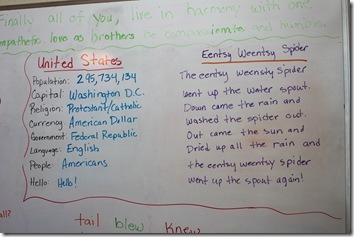 Finally all of you, live in harmony with one
empathetic, love as brothers be compassionate and humble.
United States
Population: 295,734,134
Capital: Washington D.C.
Religion: Protestant/Catholic
Currency: American Dollar
Government: Federal Republic
Language: English
People: Americans
Hello: Hello!
Eentsy Weentsy Spider
The eentsy weensty Spider
went up the water spout.
Down came the rain and
washed the spider out.
Out came the sun and
Dried up all the rain and
the eentsy weentsy spider
went up the spout again!
tail blew Knew